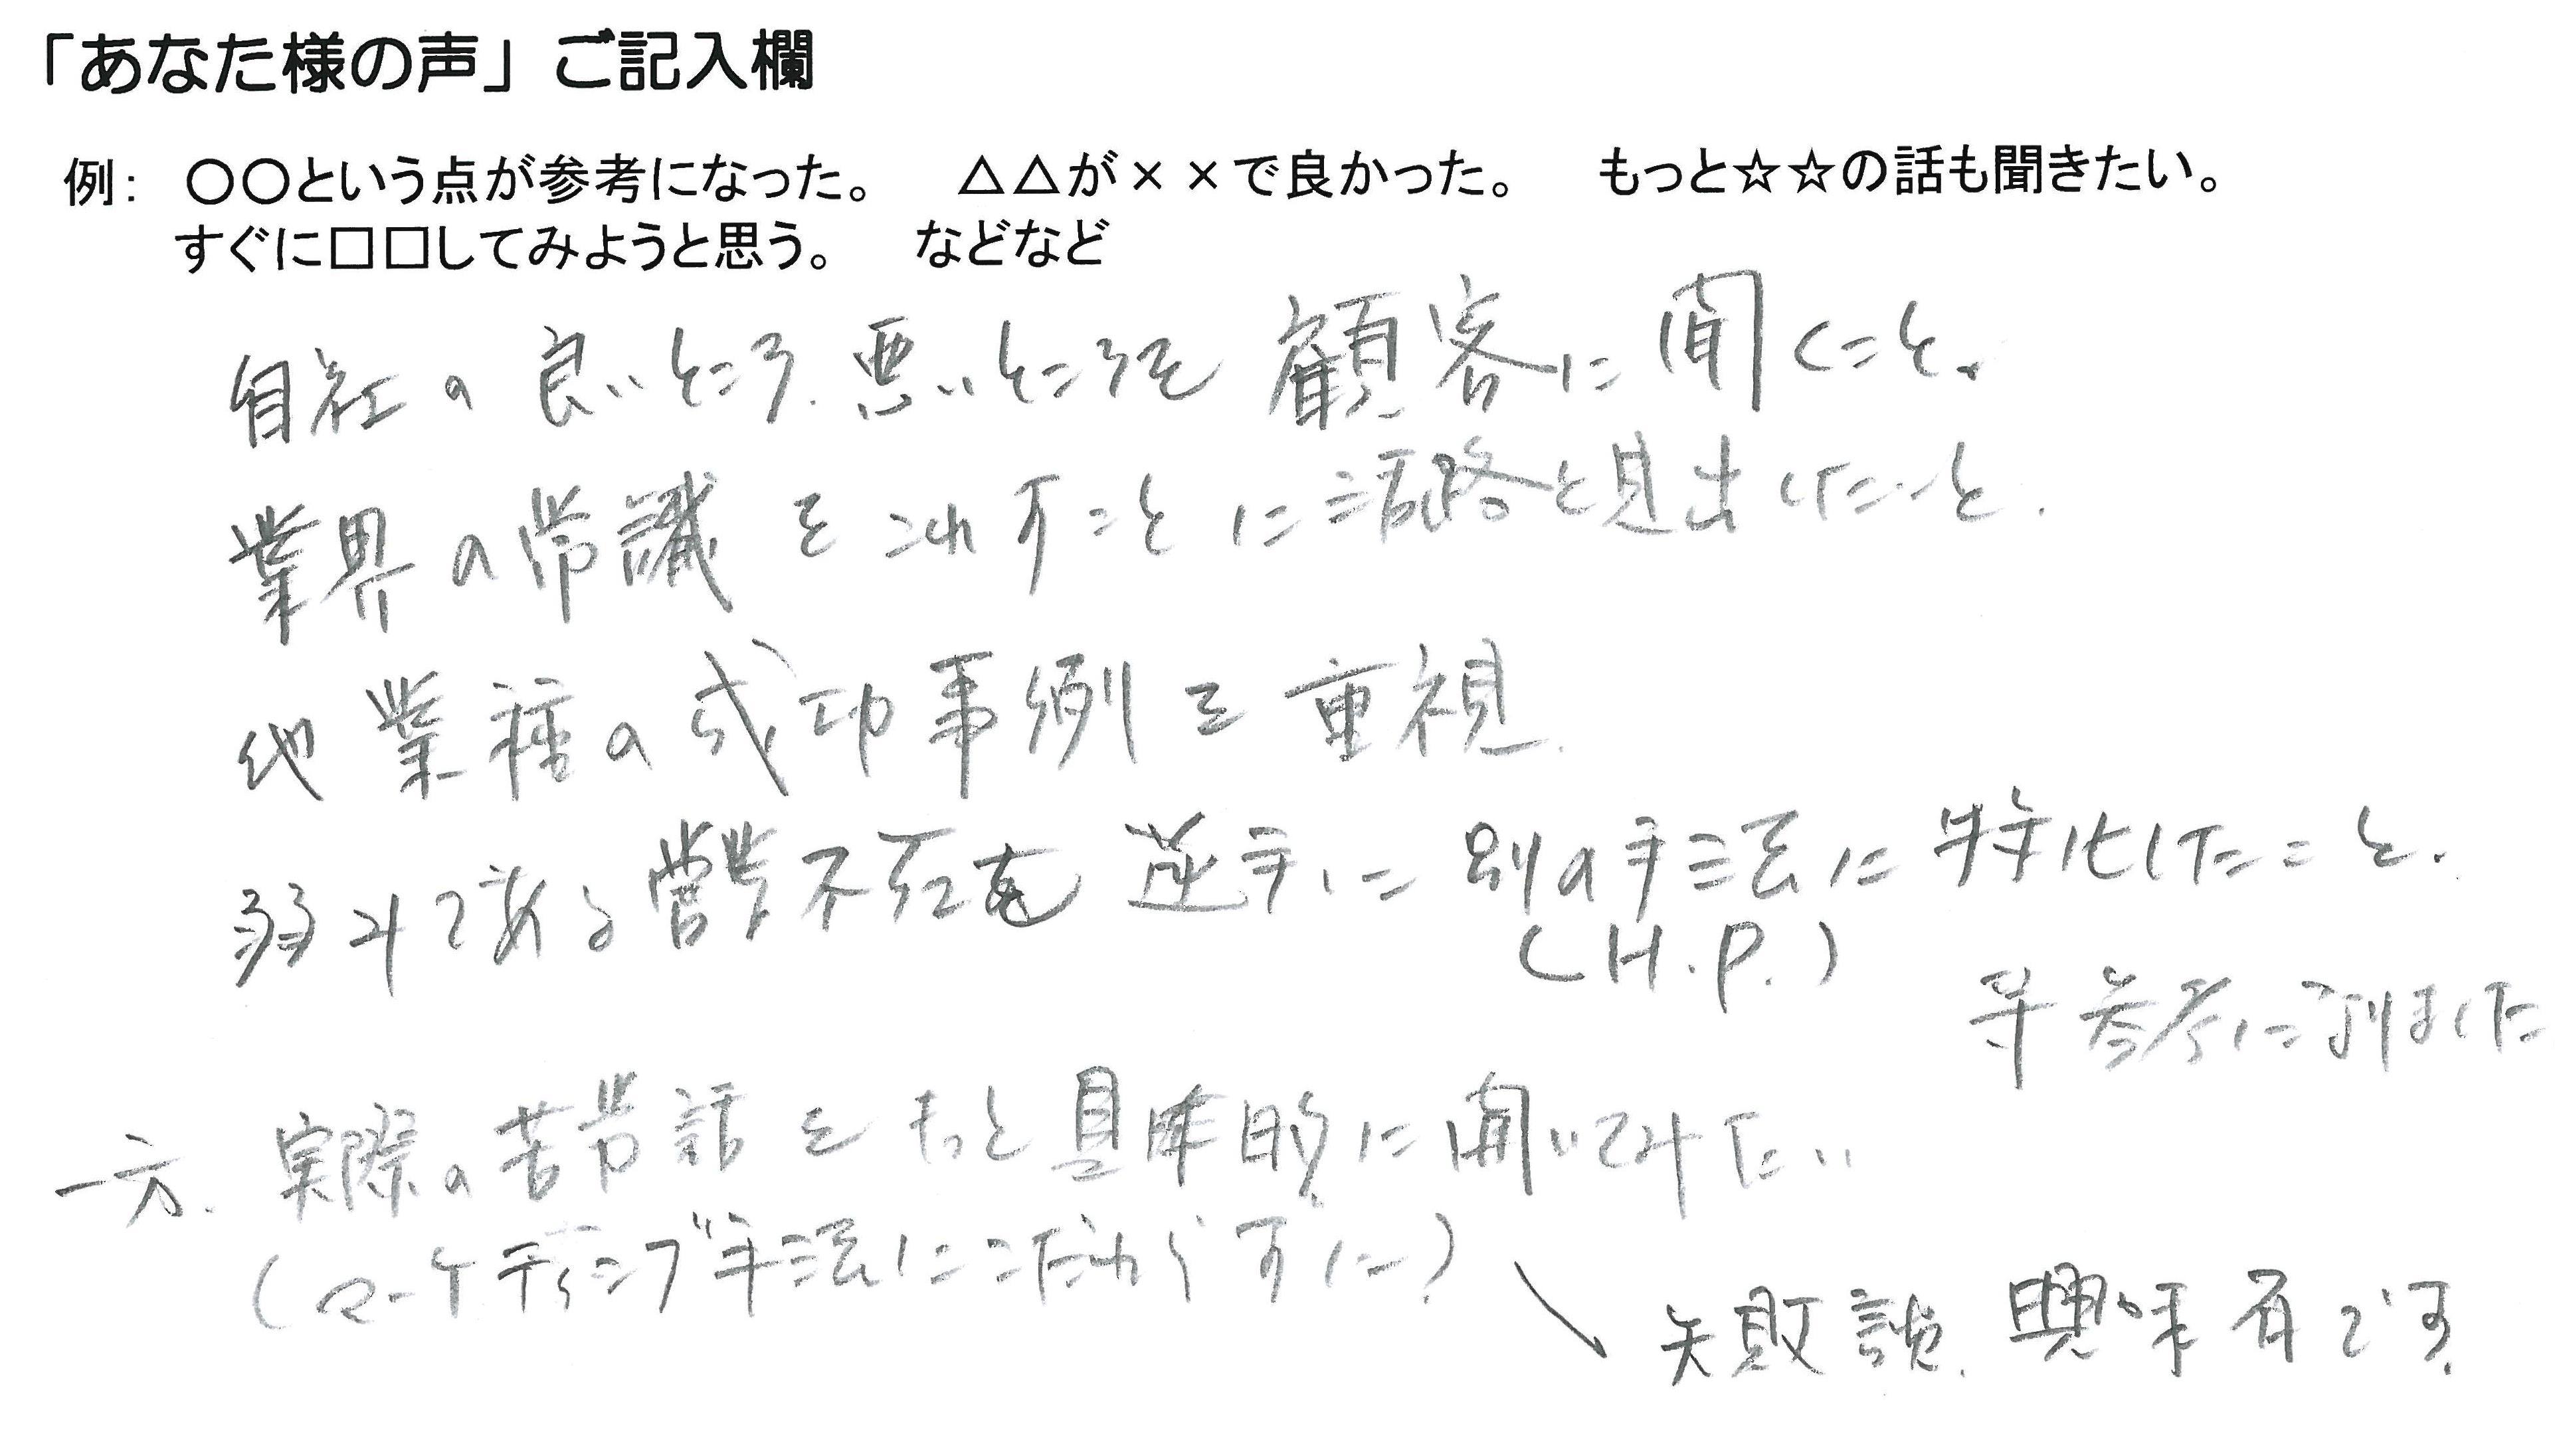 「あなた様の声」ご記入欄
例： 〇〇という点が参考になった。 △△が××で良かった。 もっと☆☆の話も聞きたい。
すぐに□□してみようと思う。 などなど
自社の良いところ、悪いところを顧客に聞くこと。
業界の常識をこわすことに活路を見出したこと。
他業種の成功事例を重視。
弱みである営業不在を逆手に別の手法に特化したこと。
(H.P.)
等参考になりました
一方、実際の苦労話をもっと具体的に聞いてみたい
(マーケティング手法にこだわらずに)
失敗談、興味有です。